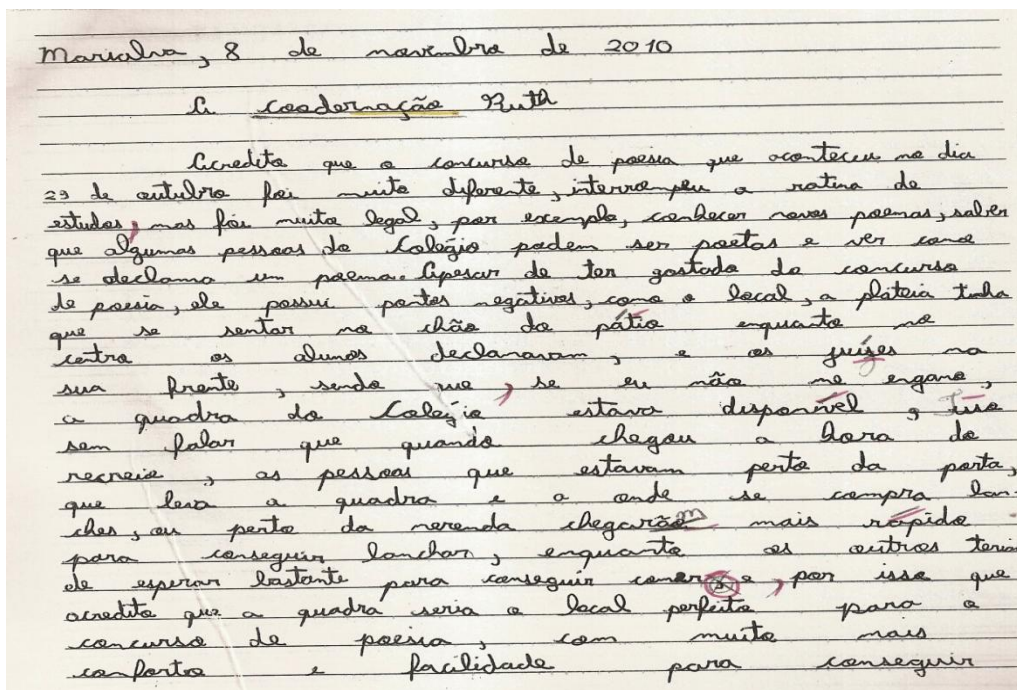 Marialva, 8 de novembro de 2010
A coodernação Ruth
Acredito que o concurso de poesia que aconteceu no dia
29 de outubro foi muito diferente, interrompeu a rotina de
estudos, mas foi muito legal, por exemplo, conhecer novos poemas, saber
que algumas pessoas do Colégio podem ser poetas e ver como
se declama um poema. Apesar de ter gostado do concurso
de poesia, ele possui pontos negativos, como o local, a platéia tinha
que se sentar no chão do pátio enquanto no
centro os alunos declamavam, e os juízes na
sua frente, sendo que, se eu não me engano,
a quadra do Colégio estava disponível, isso
sem falar que quando chegou a hora do
recreio, as pessoas que estavam perto da porta,
que leva a quadra e a onde se compra lan-
ches, ou perto da merenda chegarão mais rápido
para conseguir lanchar, enquanto os outros teria
de esperar bastante para conseguir comer e, por isso que
acredito que a quadra seria o local perfeito para o
concurso de poesia, com muito mais
conforto e facilidade para conseguir